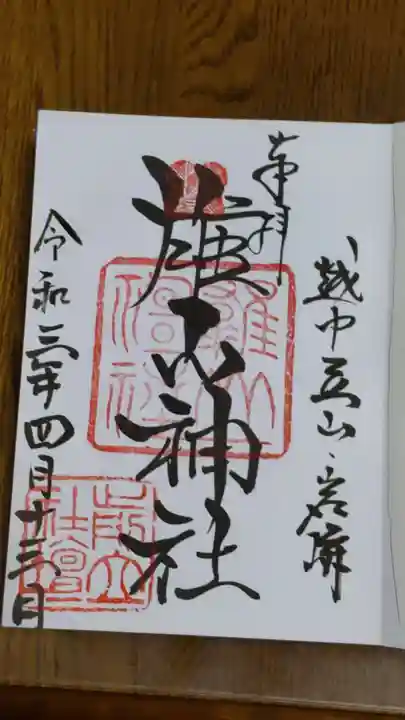 越中立山・岩峅
奉拝
雄山神社
令和三年四月十三日
雄山
神社
前立
社壇